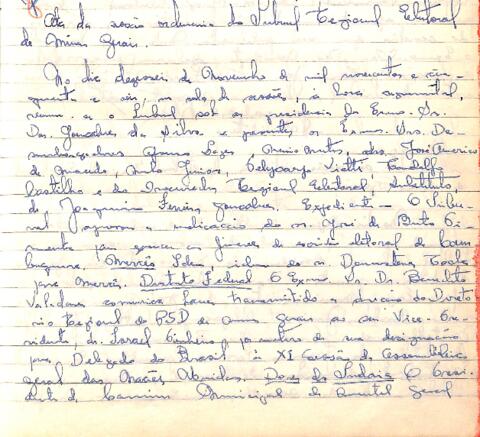 Ata da sessão ordinaria do Tribunal Regional Eleitoral
de Minas Gerais.
No dia dezesseis de Novembro de mil novecentos e cin-
quenta e seis, na sala de sessões, á hora regimental,
reuniu-se o Tribunal sob a presidencia do Exmo. Sr.
Des. Gonçalves da Silva e presentes os Exmos. Srs. De-
sembargadores Lopes drs. José Americo
de Macedo,
Castilho e do Procurador Regional Eleitoral, substituto,
dr. Joaquim Ferreira Gonçalves. Expediente - O Tribu-
nal aprovou a indicação do sr. José de Brito Pi-
menta para exercer as funções de escrivão eleitoral de
idem, idem do sr.
para Mercês. Distrito Federal O Exmo. Sr. Dr. Benedito
Valadares comunica haver transmitido a direção do Direto-
rio Regional do PSD de Minas Gerais ao seu Vice-Pre-
sidente, dr. Israel Pinheiro, por motivo de sua designação
para Delegado do Brasil á XI Sessão da Assembléia
Geral das Nações Unidas. Dores do Indaiá O Presi-
dente da Camara Municipal de